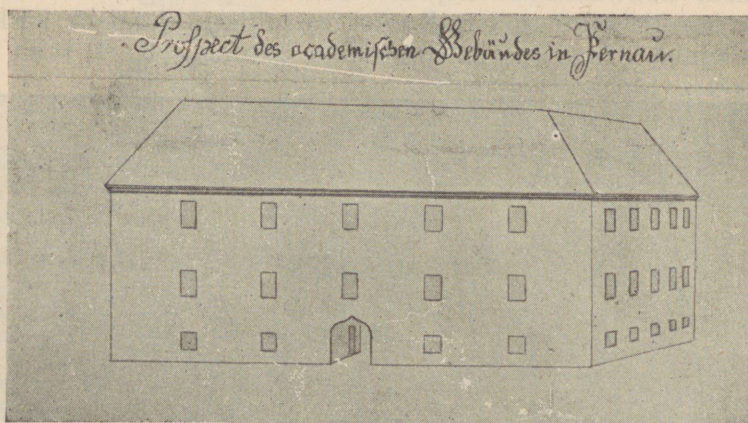 Prosspect des academischen Gebäudes in Pernau.